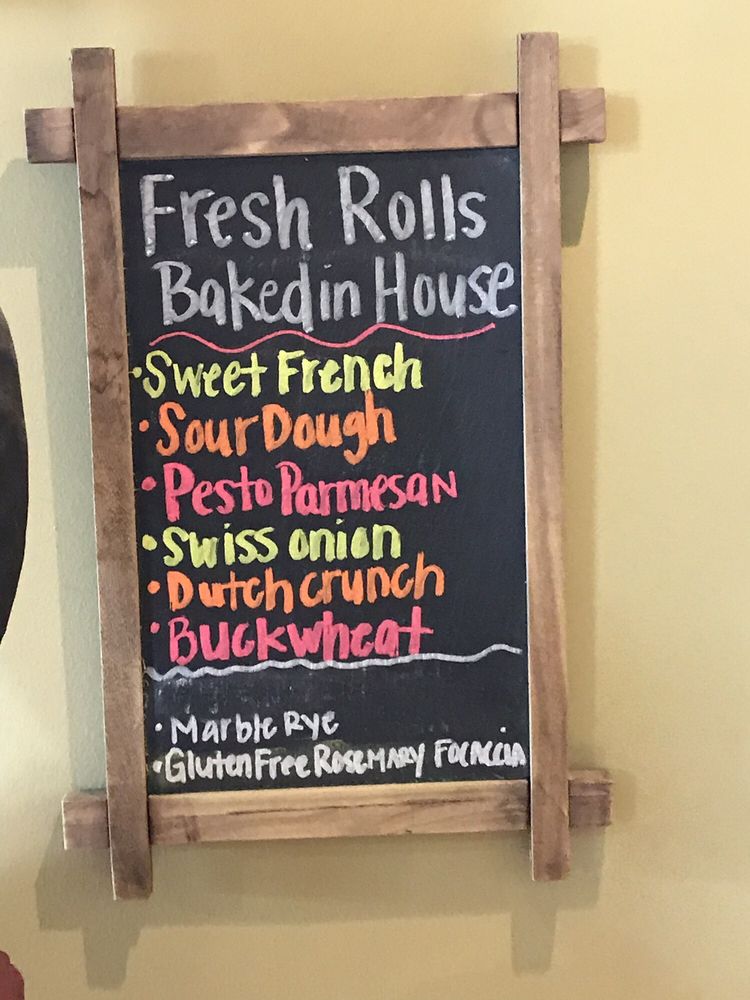 Fresh Rolls
Baked in House
• Sweet French
• Sour Dough
• Pesto Parmesan
• Swiss onion
• Dutch crunch
• Buckwheat
• Marble Rye
• Gluten Free Rosemary Focaccia